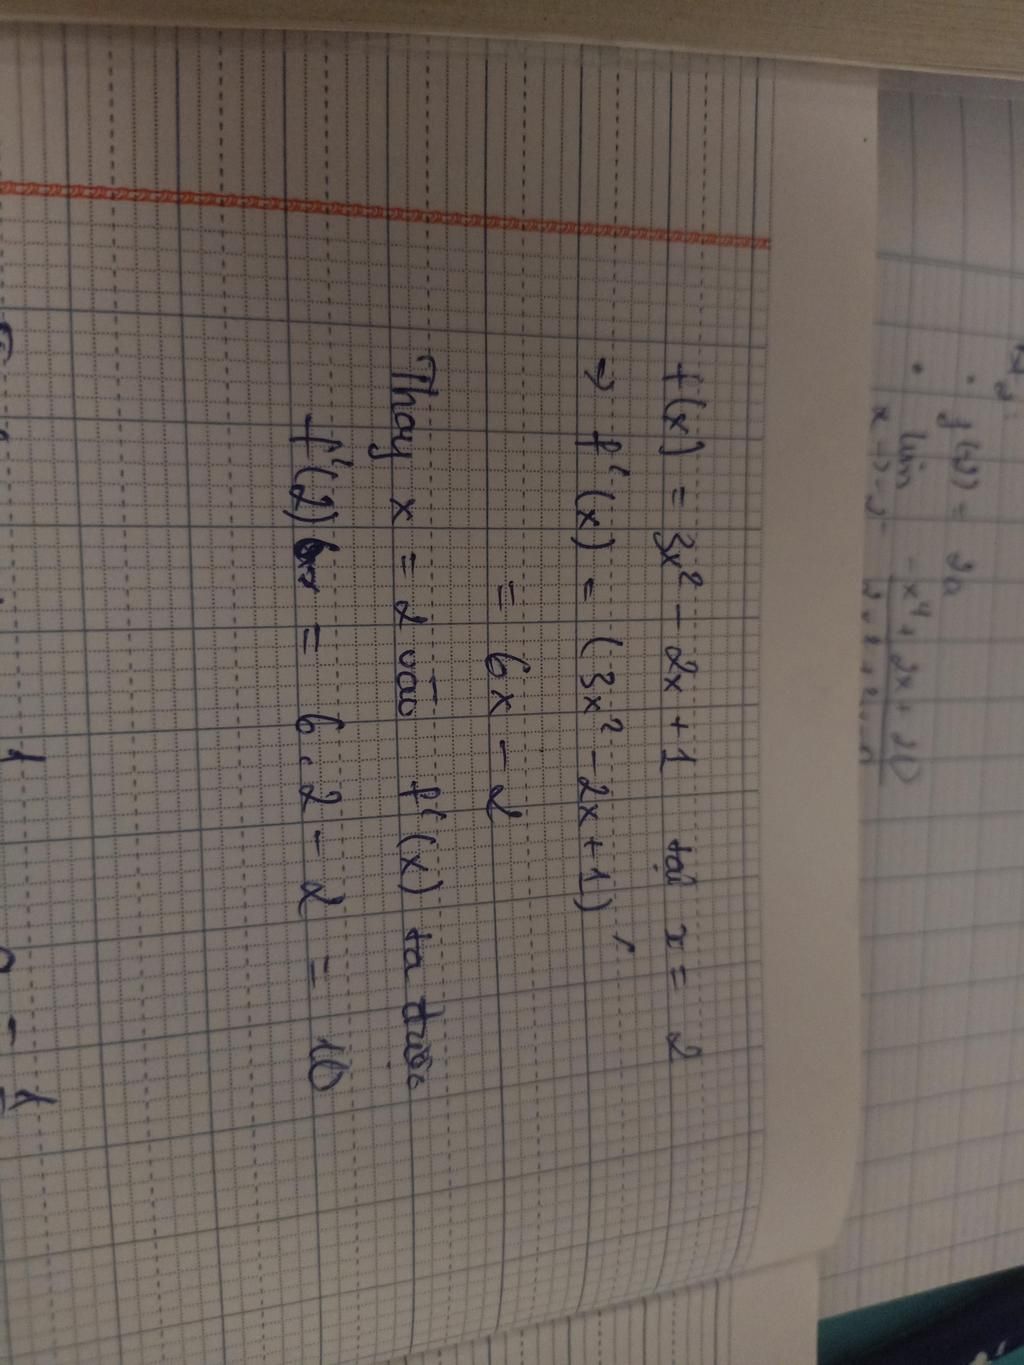 f(x) = 3x² - 2x + 1 tại x = 2
→ f'(x) = (3x² - 2x + 1)'
= 6x - 2
Thay x = 2 vào f'(x) ta được
f'(2) = 6.2 - 2 = 10
lim
-x⁴ + 2x + 21